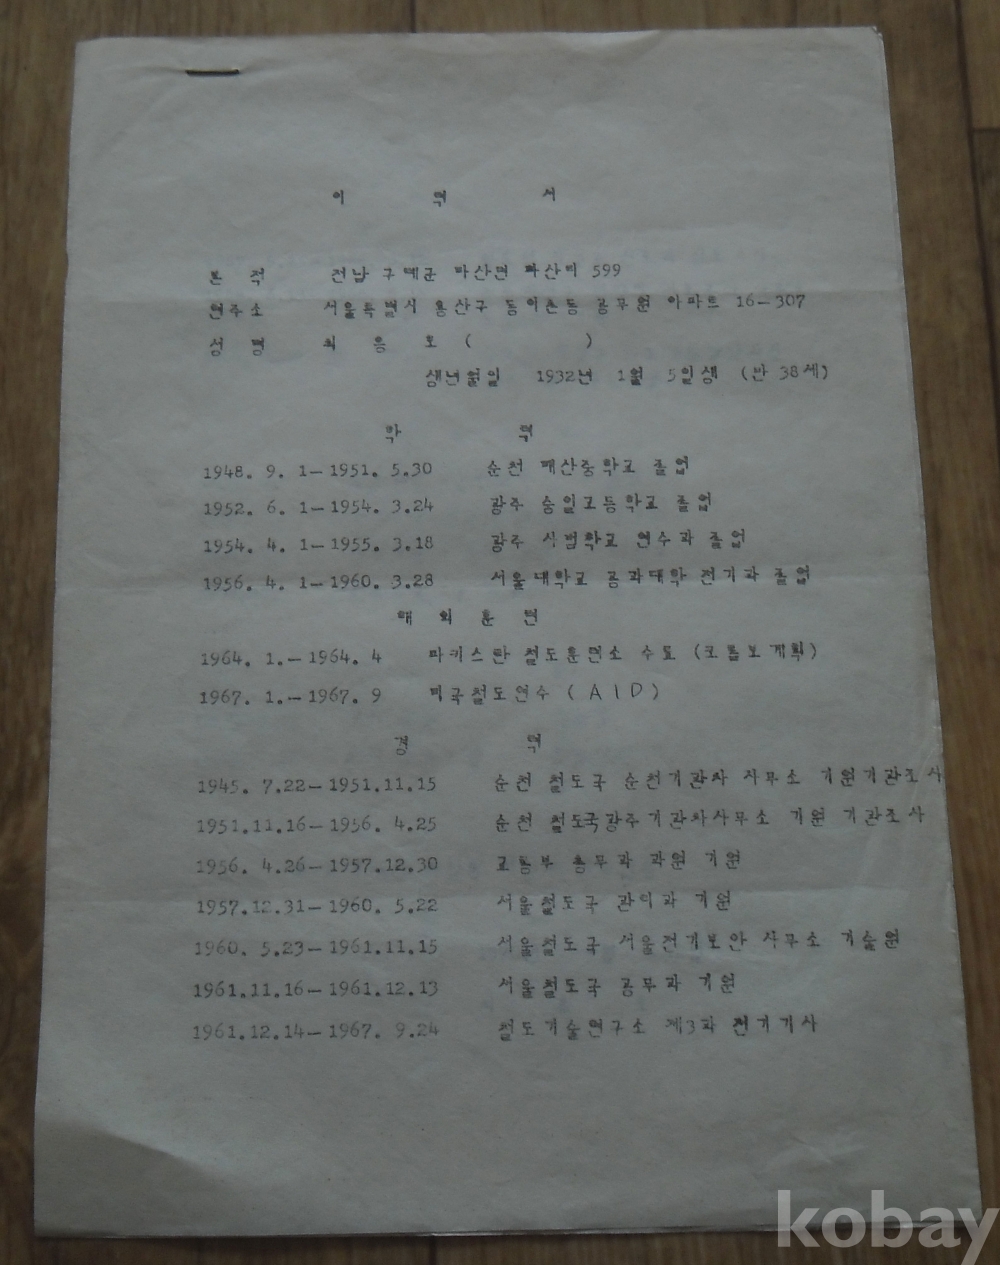 이 력 서
본 적 전남 구례군 마산면 마산리 599
현주소 서울특별시 용산구 동이촌동 공무원 아파트 16-307
성 명 최 응 호 ( )
생년월일 1932년 1월 5일생 (만 38세)
학 력
1948. 9. 1-1951. 5.30 순천 매산중학교 졸업
1952. 6. 1-1954. 3.24 광주 숭일고등학교 졸업
1954. 4. 1-1955. 3.18 광주 사범학교 연수과 졸업
1956. 4. 1-1960. 3.28 서울대학교 공과대학 전기과 졸업
해 외 훈 련
1964. 1.-1964. 4 파키스탄 철도훈련소 수료 (코롬보계획)
1967. 1.-1967. 9 미국철도연수 (AID)
경 력
1945. 7.22-1951.11.15 순천 철도국 순천기관차 사무소 기원기관조사
1951.11.16-1956. 4.25 순천 철도국광주기관차사무소 기원 기관조사
1956. 4.26-1957.12.30 교통부 총무과 과원 기원
1957.12.31-1960. 5.22 서울철도국 관리과 기원
1960. 5.23-1961.11.15 서울철도국 서울전기보안 사무소 기술원
1961.11.16-1961.12.13 서울철도국 공무과 기원
1961.12.14-1967. 9.24 철도기술연구소 제3과 전기기사
kobay